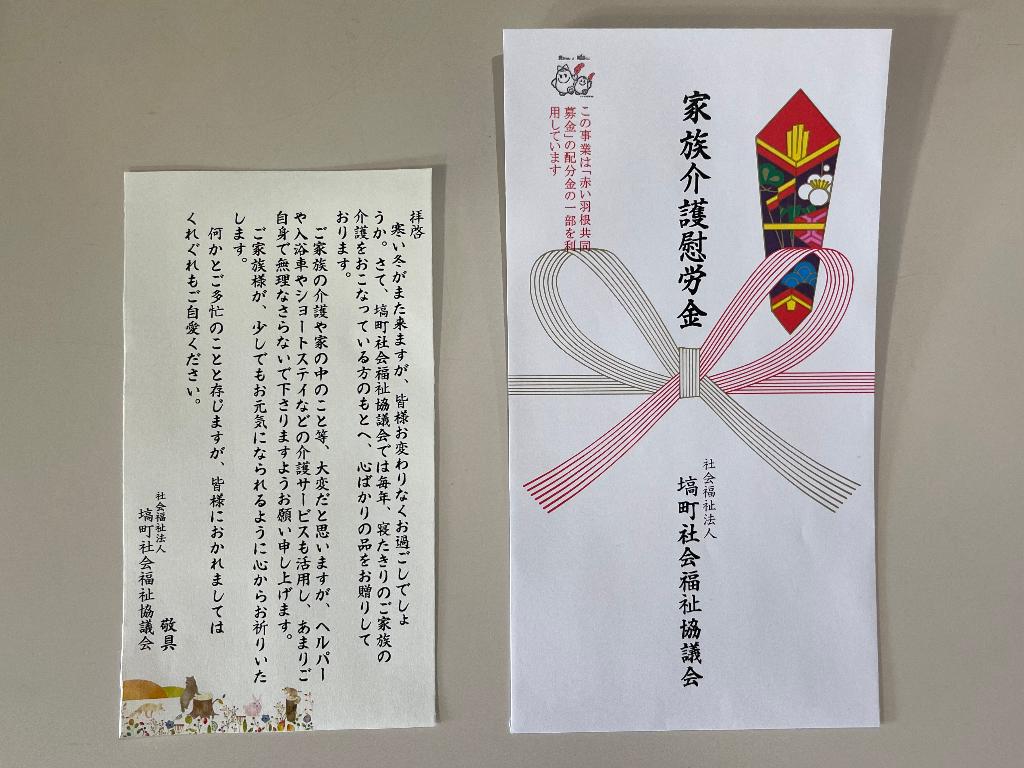 家族介護慰労金
この事業は「赤い羽根共同
募金」の配分金の一部を利
用しています
社会福祉法人
塙町社会福祉協議会
拝啓
寒い冬がまた来ますが、皆様お変わりなくお過ごしでしょ
うか。さて、塙町社会福祉協議会では毎年、寝たきりのご家族の
介護をおこなっている方のもとへ、心ばかりの品をお贈りして
おります。
ご家族の介護や家の中のこと等、大変だと思いますが、ヘルパー
や入浴車やショートステイなどの介護サービスも活用し、あまりご
自身で無理なさらないで下さりますようお願い申し上げます。
ご家族様が、少しでもお元気になられるように心からお祈りいた
します。
何かとご多忙のことと存じますが、皆様におかれましては
くれぐれもご自愛ください。
敬具
社会福祉法人
塙町社会福祉協議会